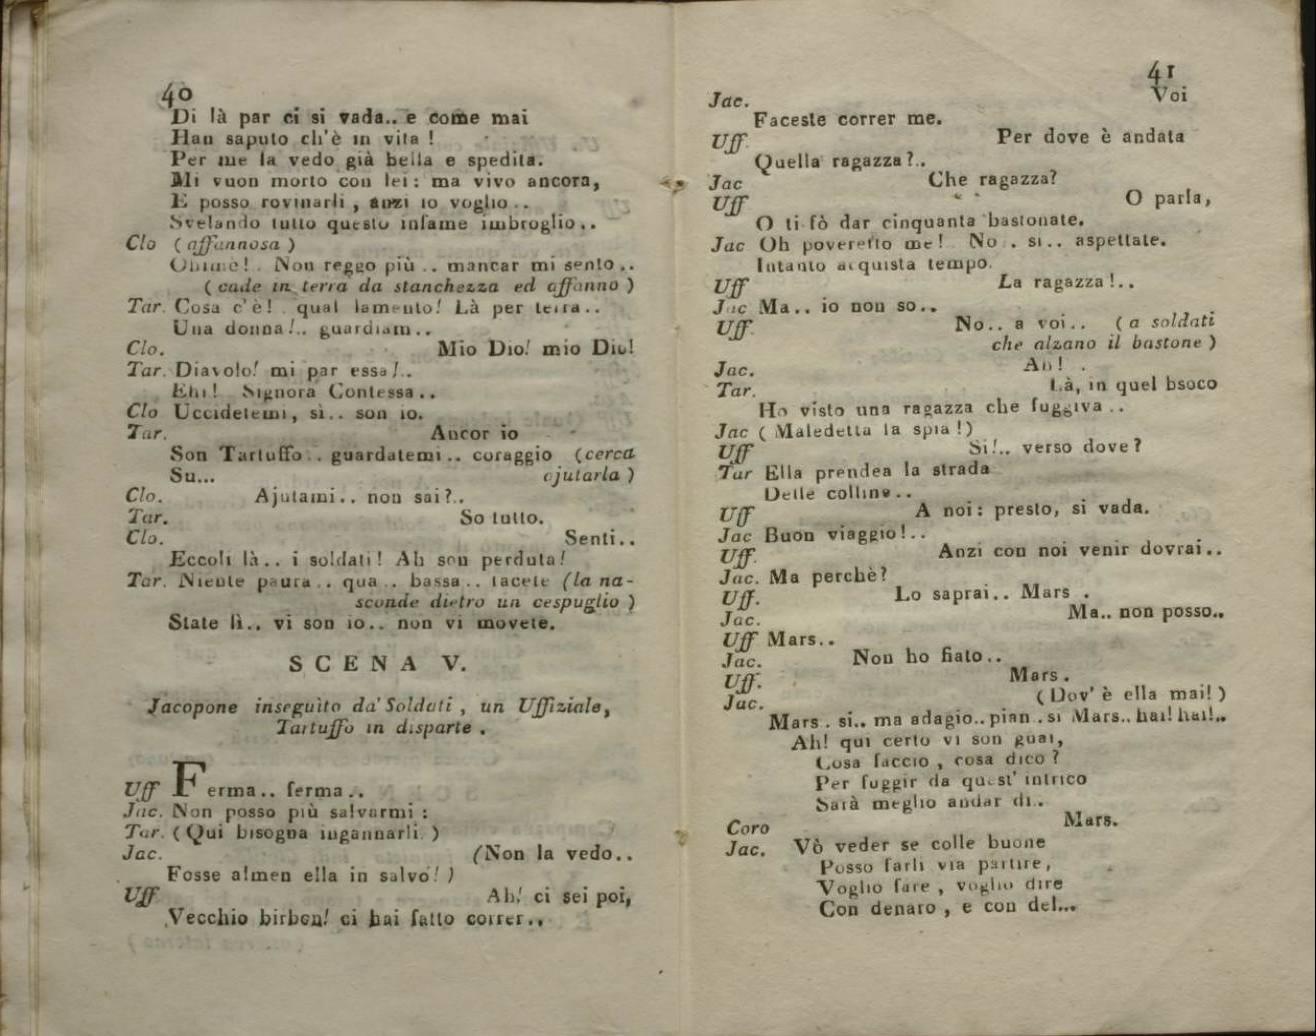 40
Di là par ci si vada.. e come mai
Han saputo ch'è in vita !
Per me la vedo già bella e spedita.
Mi vuon morto con lei : ma vivo ancora,
E posso rovinarli , anzi io voglio ..
Svelando tutto questo infame imbroglio ..
Clo ( affannosa )
Ohimè ! . Non reggo più .. mancar mi sento ..
( cade in terra da stanchezza ed affanno )
Tar. Cosa c'è ! . qual lamento! Là per terra ..
Una donna !.. guardiam ..
Clo. Mio Dio! mio Dio!
Tar. Diavolo! mi par essa !..
Ehi ! Signora Contessa ..
Clo Uccidetemi , sì .. son io.
Tar. Ancor io
Son Tartuffo .. guardatemi .. coraggio (cerca
Su... ajutarla )
Clo. Ajutami .. non sai ?..
Tar. So tutto.
Clo. Senti ..
Eccoli là .. i soldati ! Ah son perduta !
Tar. Niente paura .. qua .. bassa .. tacete (la na-
sconde dietro un cespuglio )
State lì .. vi son io .. non vi movete.
SCENA V.
Jacopone inseguìto da' Soldati , un Uffiziale,
Tartuffo in disparte .
Uff Ferma .. ferma ..
Jac. Non posso più salvarmi :
Tar. ( Qui bisogna ingannarli. )
Jac. (Non la vedo ..
Fosse almen ella in salvo! )
Uff Ah! ci sei poi,
Vecchio birbon! ci hai fatto correr ..
41
Jac. Voi
Faceste correr me.
Uff. Per dove è andata
Quella ragazza ?..
Jac Che ragazza?
Uff O parla,
O ti fò dar cinquanta bastonate.
Jac Oh poveretto me ! No .. si .. aspettate.
Intanto acquista tempo.
Uff La ragazza !..
Jac Ma .. io non so ..
Uff. No .. a voi .. ( a soldati
che alzano il bastone )
Jac. Ah ! .
Tar. Là, in quel bsoco
Ho visto una ragazza che fuggiva ..
Jac ( Maledetta la spia !)
Uff Si !.. verso dove ?
Tar Ella prendea la strada
Delle colline ..
Uff A noi : presto, si vada.
Jac Buon viaggio !..
Uff. Anzi con noi venir dovrai ..
Jac. Ma perchè?
Uff. Lo saprai .. Mars .
Jac. Ma .. non posso ..
Uff Mars ..
Jac. Non ho fiato ..
Uff. Mars .
Jac. ( Dov' è ella mai ! )
Mars . si .. ma adagio .. pian . si Mars .. hai! hai! ..
Ah! qui certo vi son guai,
Cosa faccio , cosa dico ?
Per fuggir da quest' intrico
Sarà meglio andar di ..
Coro Mars.
Jac. Vò veder se colle buone
Posso farli via partire,
Voglio fare , voglio dire
Con denaro , e con del...